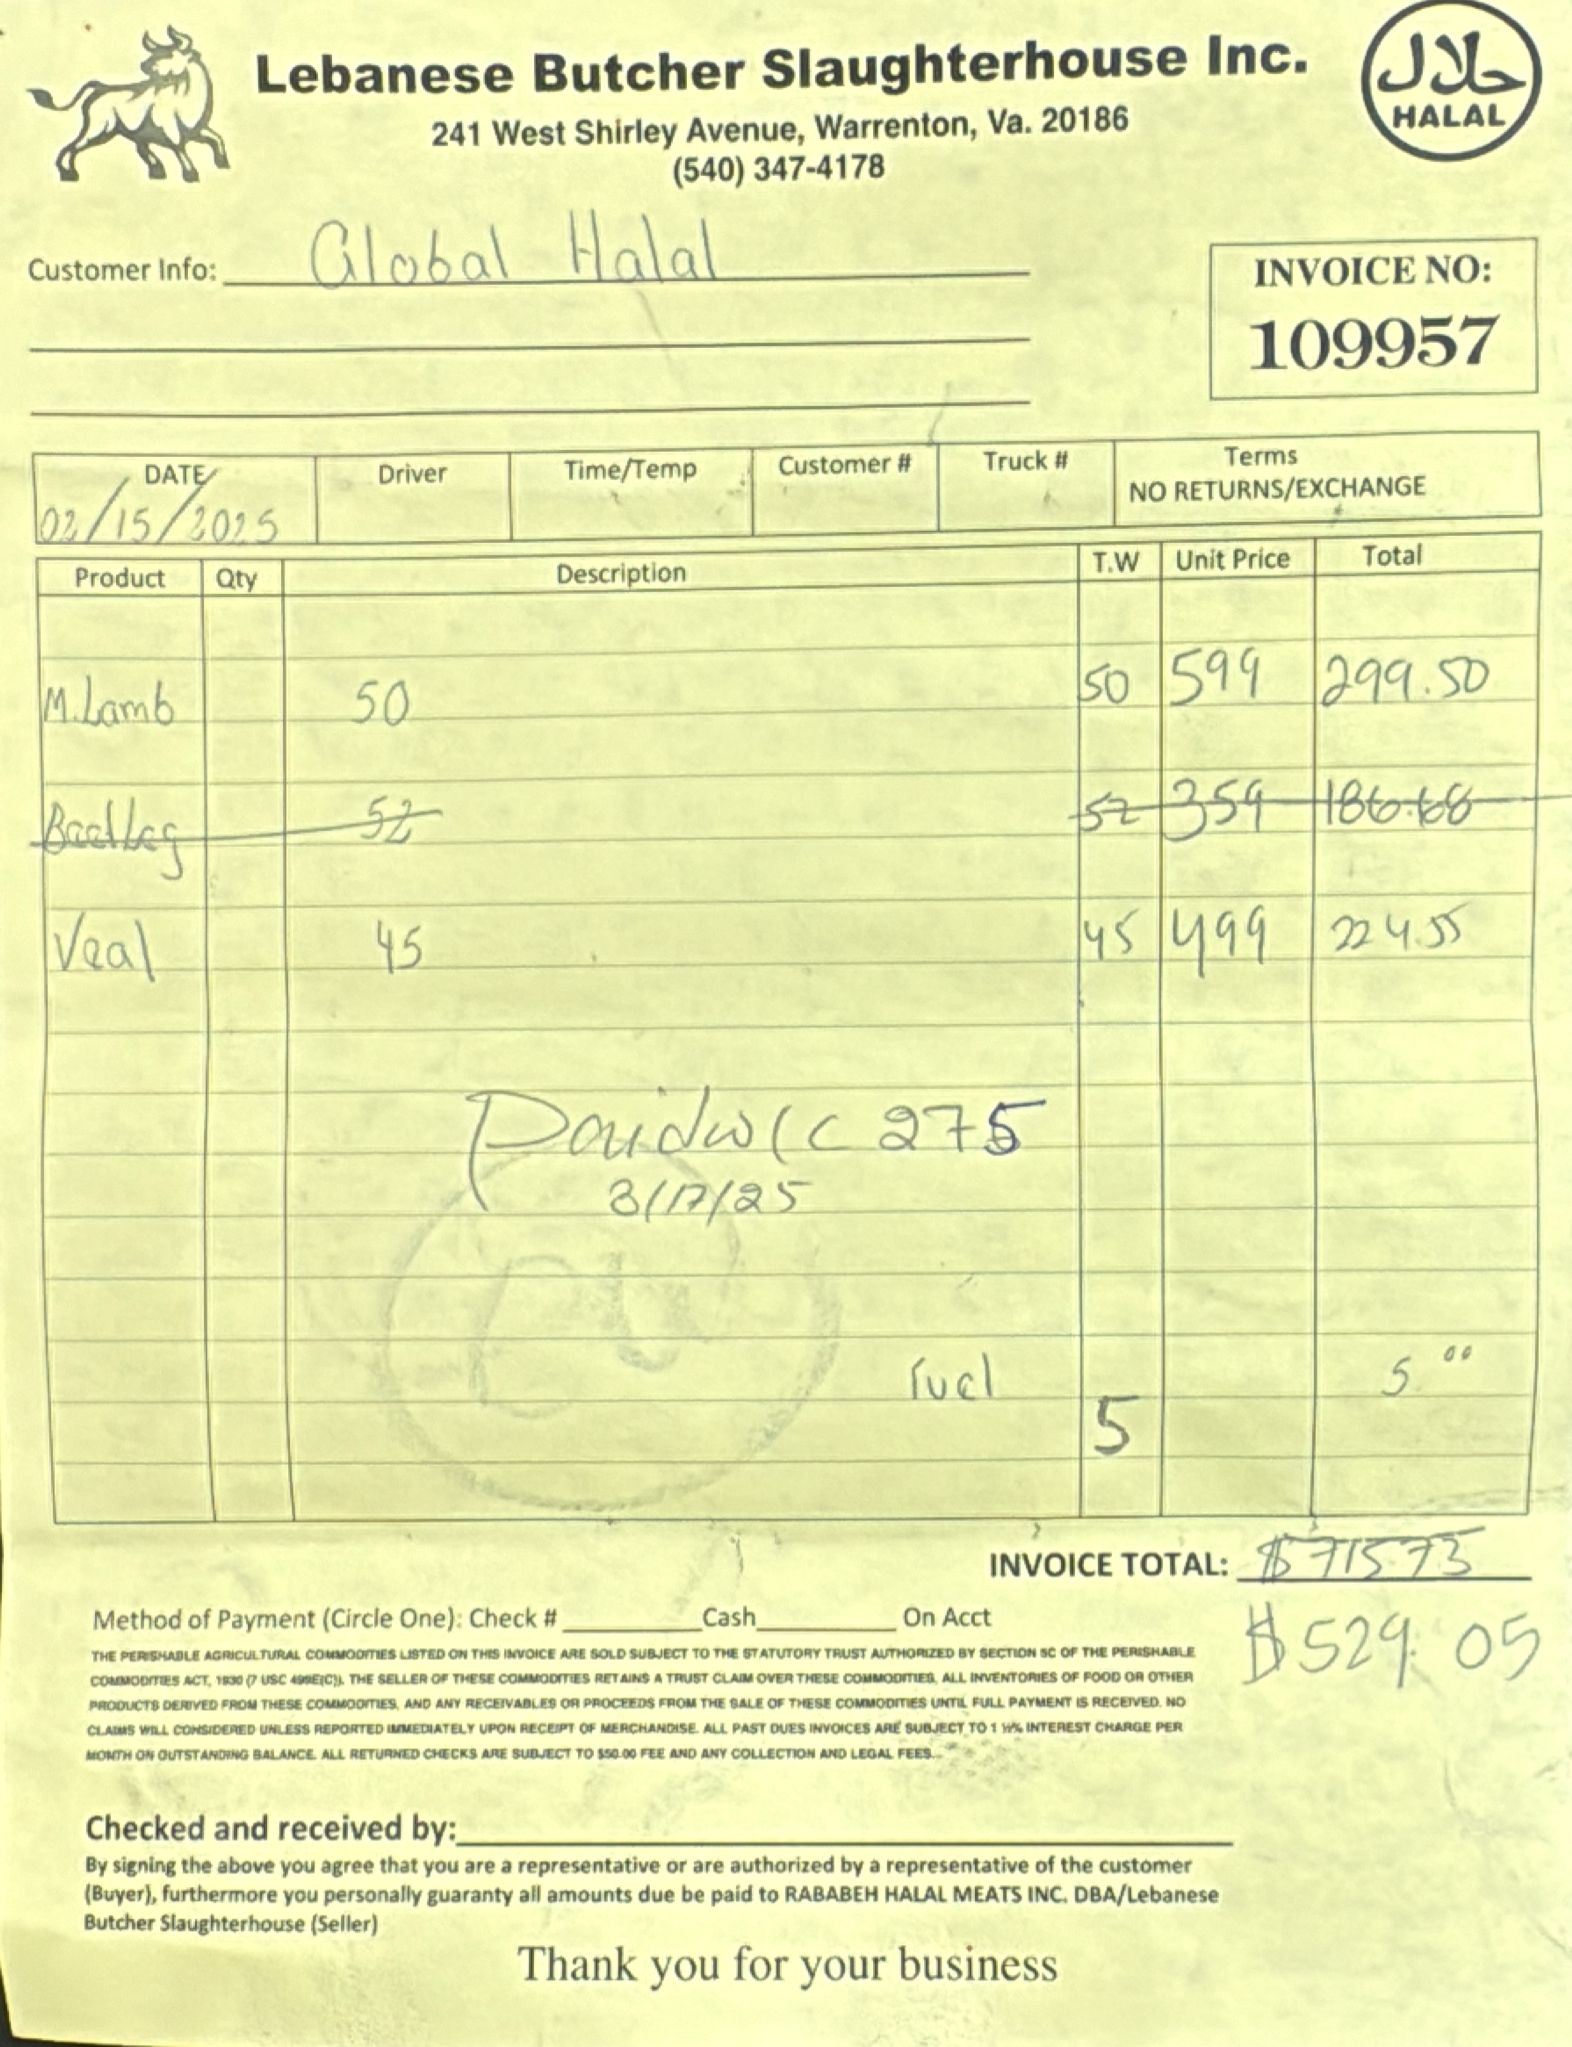 Lebanese Butcher Slaughterhouse Inc.
حلال
HALAL
241 West Shirley Avenue, Warrenton, Va. 20186
(540) 347-4178
Customer Info: Global Halal
INVOICE NO:
109957
DATE Driver Time/Temp Customer # Truck # Terms
NO RETURNS/EXCHANGE
02/15/2025
Product Qty Description T.W Unit Price Total
M.Lamb 50 50 599 299.50
52 52 359 186.68
Veal 45 45 499 224.55
Paid w 275
3/17/25
Fuel 5.00
5
INVOICE TOTAL: $715.73
$529.05
Method of Payment (Circle One): Check # Cash On Acct
THE PERISHABLE AGRICULTURAL COMMODITIES LISTED ON THIS INVOICE ARE SOLD SUBJECT TO THE STATUTORY TRUST AUTHORIZED BY SECTION 5C OF THE PERISHABLE
COMMODITIES ACT, 1930 (7 USC 499E(C)). THE SELLER OF THESE COMMODITIES RETAINS A TRUST CLAIM OVER THESE COMMODITIES, ALL INVENTORIES OF FOOD OR OTHER
PRODUCTS DERIVED FROM THESE COMMODITIES, AND ANY RECEIVABLES OR PROCEEDS FROM THE SALE OF THESE COMMODITIES UNTIL FULL PAYMENT IS RECEIVED. NO
CLAIMS WILL CONSIDERED UNLESS REPORTED IMMEDIATELY UPON RECEIPT OF MERCHANDISE. ALL PAST DUES INVOICES ARE SUBJECT TO 1 ½% INTEREST CHARGE PER
MONTH ON OUTSTANDING BALANCE. ALL RETURNED CHECKS ARE SUBJECT TO $50.00 FEE AND ANY COLLECTION AND LEGAL FEES.
Checked and received by:
By signing the above you agree that you are a representative or are authorized by a representative of the customer
(Buyer), furthermore you personally guaranty all amounts due be paid to RABABEH HALAL MEATS INC. DBA/Lebanese
Butcher Slaughterhouse (Seller)
Thank you for your business